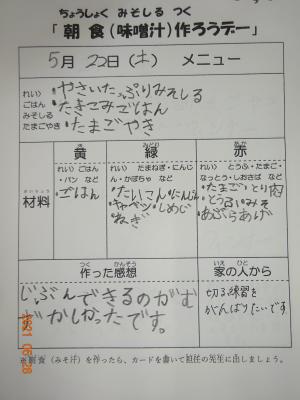 ちょうしょく みそしる つく
「朝食(味噌汁)作ろうデー」
5月 22日(土) メニュー
れい〉
ごはん
みそしる
たまごやき
・やさいたっぷりみそしる
・たきこみごはん
・たまごやき
き みどり あか
黄 緑 赤
ざいりょう
材料
れい〉ごはん
・パン など
・ごはん
れい〉たまねぎ・にんじ
ん・かぼちゃ など
・だいこん・にんじん
・キャベツ・しめじ
・ねぎ
れい〉とうふ・たまご・
なっとう・しおさば など
・たまご・とり肉
・とうふ・みそ
・あぶらあげ
つく かんそう
作った感想
じぶんできるのがむ
ずかしかったです。
いえ ひと
家の人から
切る練習を
がんばりたいです
※朝食(みそ汁)を作ったら、カードを書いて担任の先生に出しましょう。